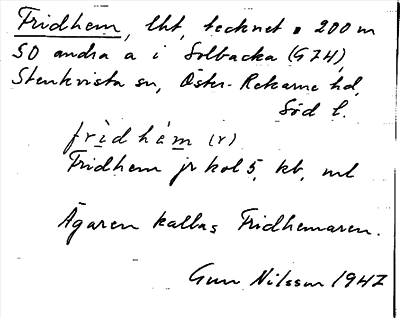 Fridhem, lht, tecknet ▪ 200 m
SO andra a i Solbacka (G 7 H),
Stenkvista sn, Öster-Rekarne hd,
Söd l.
frìdhèm (r)
Fridhem jr kol 5, kb, ml
Ägaren kallas Fridhemaren.
Gun Nilsson 1947